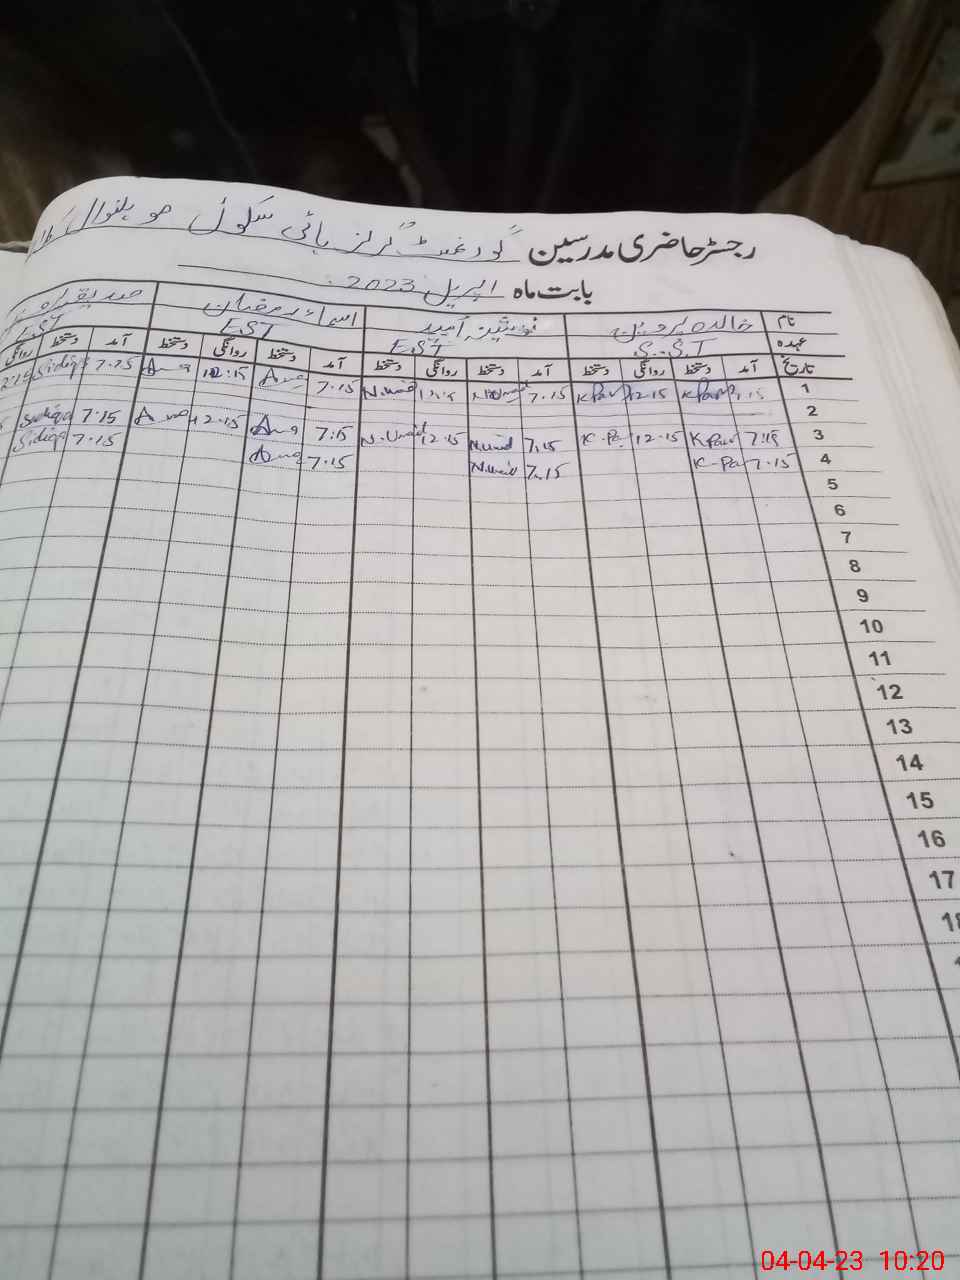 رجسٹر حاضری مدرسین گورنمنٹ گرلز ہائی سکول
بابت ماہ اپریل 2023
نام خالدہ پروین اسماء رمضان
عہدہ S.S.T EST EST EST
تاریخ آمد دستخط روانگی دستخط آمد دستخط روانگی دستخط آمد دستخط روانگی دستخط آمد دستخط روانگی
1 7.15 K Par 12.15 K Par 7.15 N.Umaid 12.15 N.Umaid 7.15 Asma 12.15 Asma 7.15 Sidiqa
2
3 7:15 K Par 12.15 K-Pa 7.15 N.umid 12.15 N.Umaid 7:15 Asma 12.15 Asma 7:15 Sidiqa
4 7.15 K-Pa 7.15 N.umid 7.15 Asma 7.15 Sidiqa
5
6
7
8
9
10
11
12
13
14
15
16
17
04-04-23 10:20